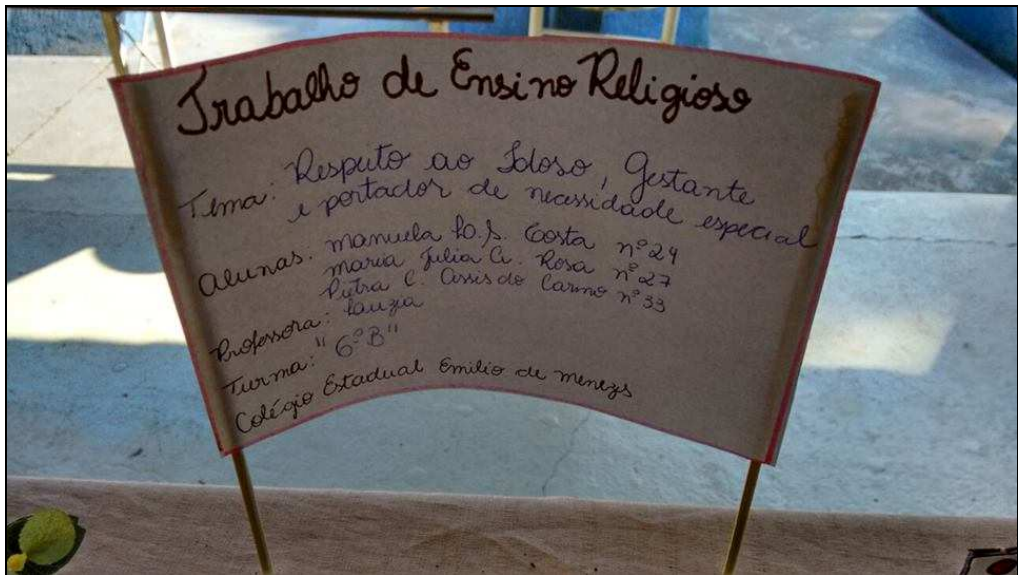 Trabalho de Ensino Religioso
Tema: Respeito ao Idoso, Gestante
e portador de necessidade especial
Alunas: Manuela S. Costa nº 24
Maria Julia A. Rosa nº 27
Pietra C. Assis do Carmo nº 33
Professora: Lauzia
Turma: "6º B"
Colégio Estadual Emilio de Menezes